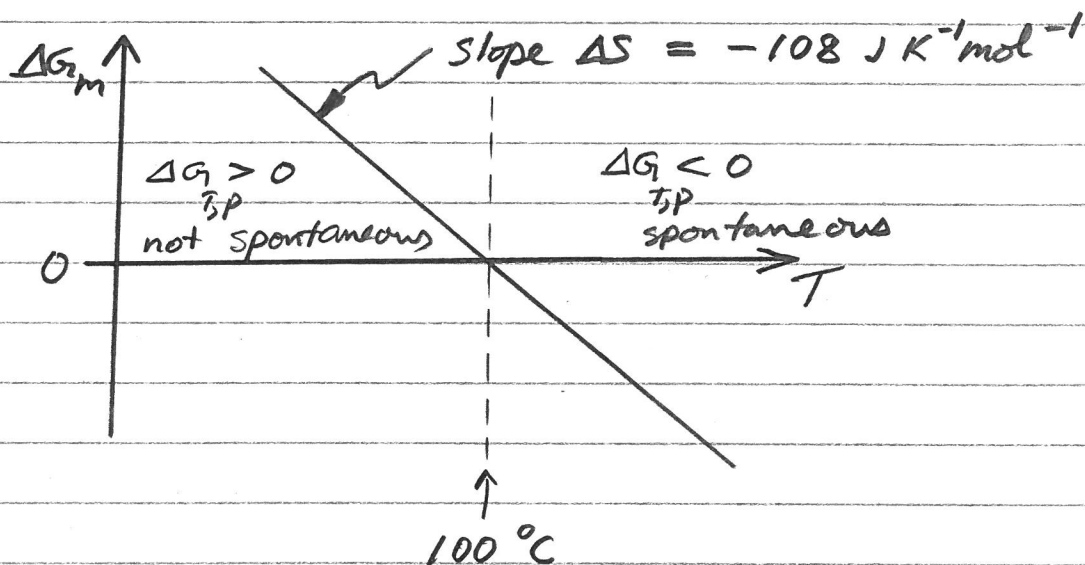 ΔGm
slope ΔS = -108 J K⁻¹ mol⁻¹
ΔG > 0
T,P
not spontaneous
ΔG < 0
T,P
spontaneous
0
T
100 °C